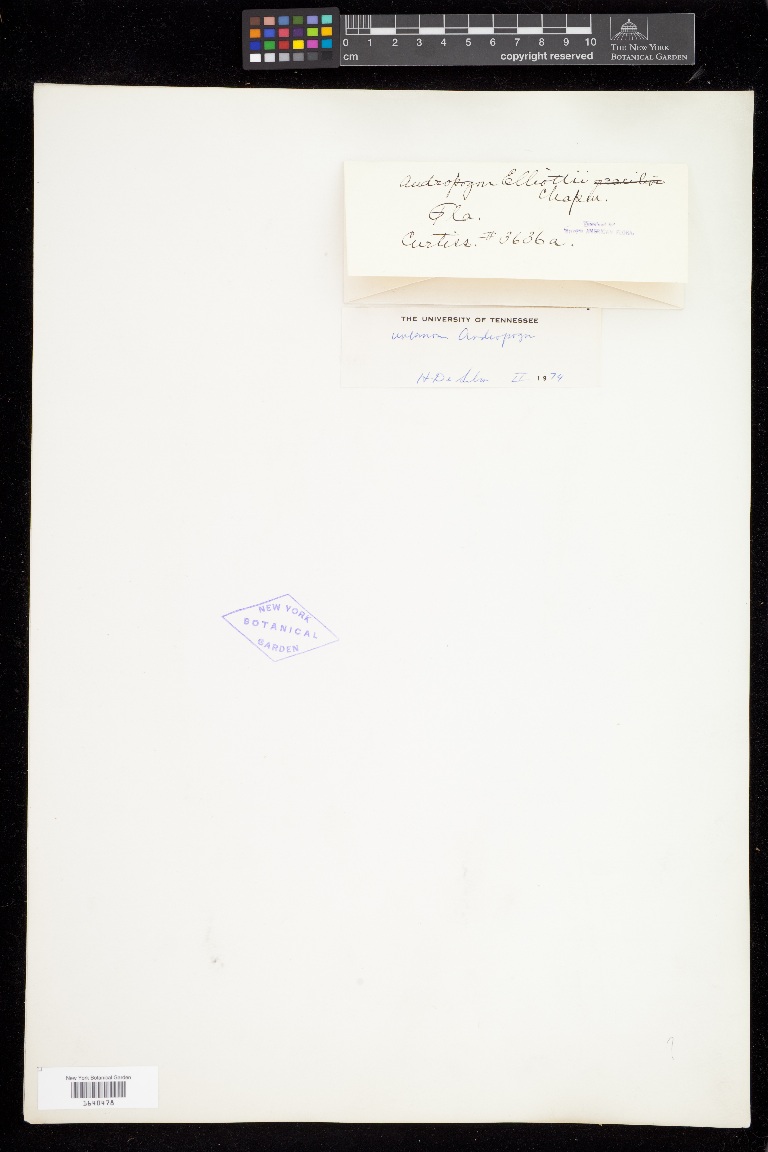 0 1 2 3 4 5 6 7 8 9 10
cm
copyright reserved
THE NEW YORK
BOTANICAL GARDEN
Andropogon Elliottii gracilior
Chapm.
Fla.
Curtiss. # 3636a.
THE UNIVERSITY OF TENNESSEE
Andropogon
II 1974
NEW YORK
BOTANICAL
GARDEN
New York Botanical Garden
?